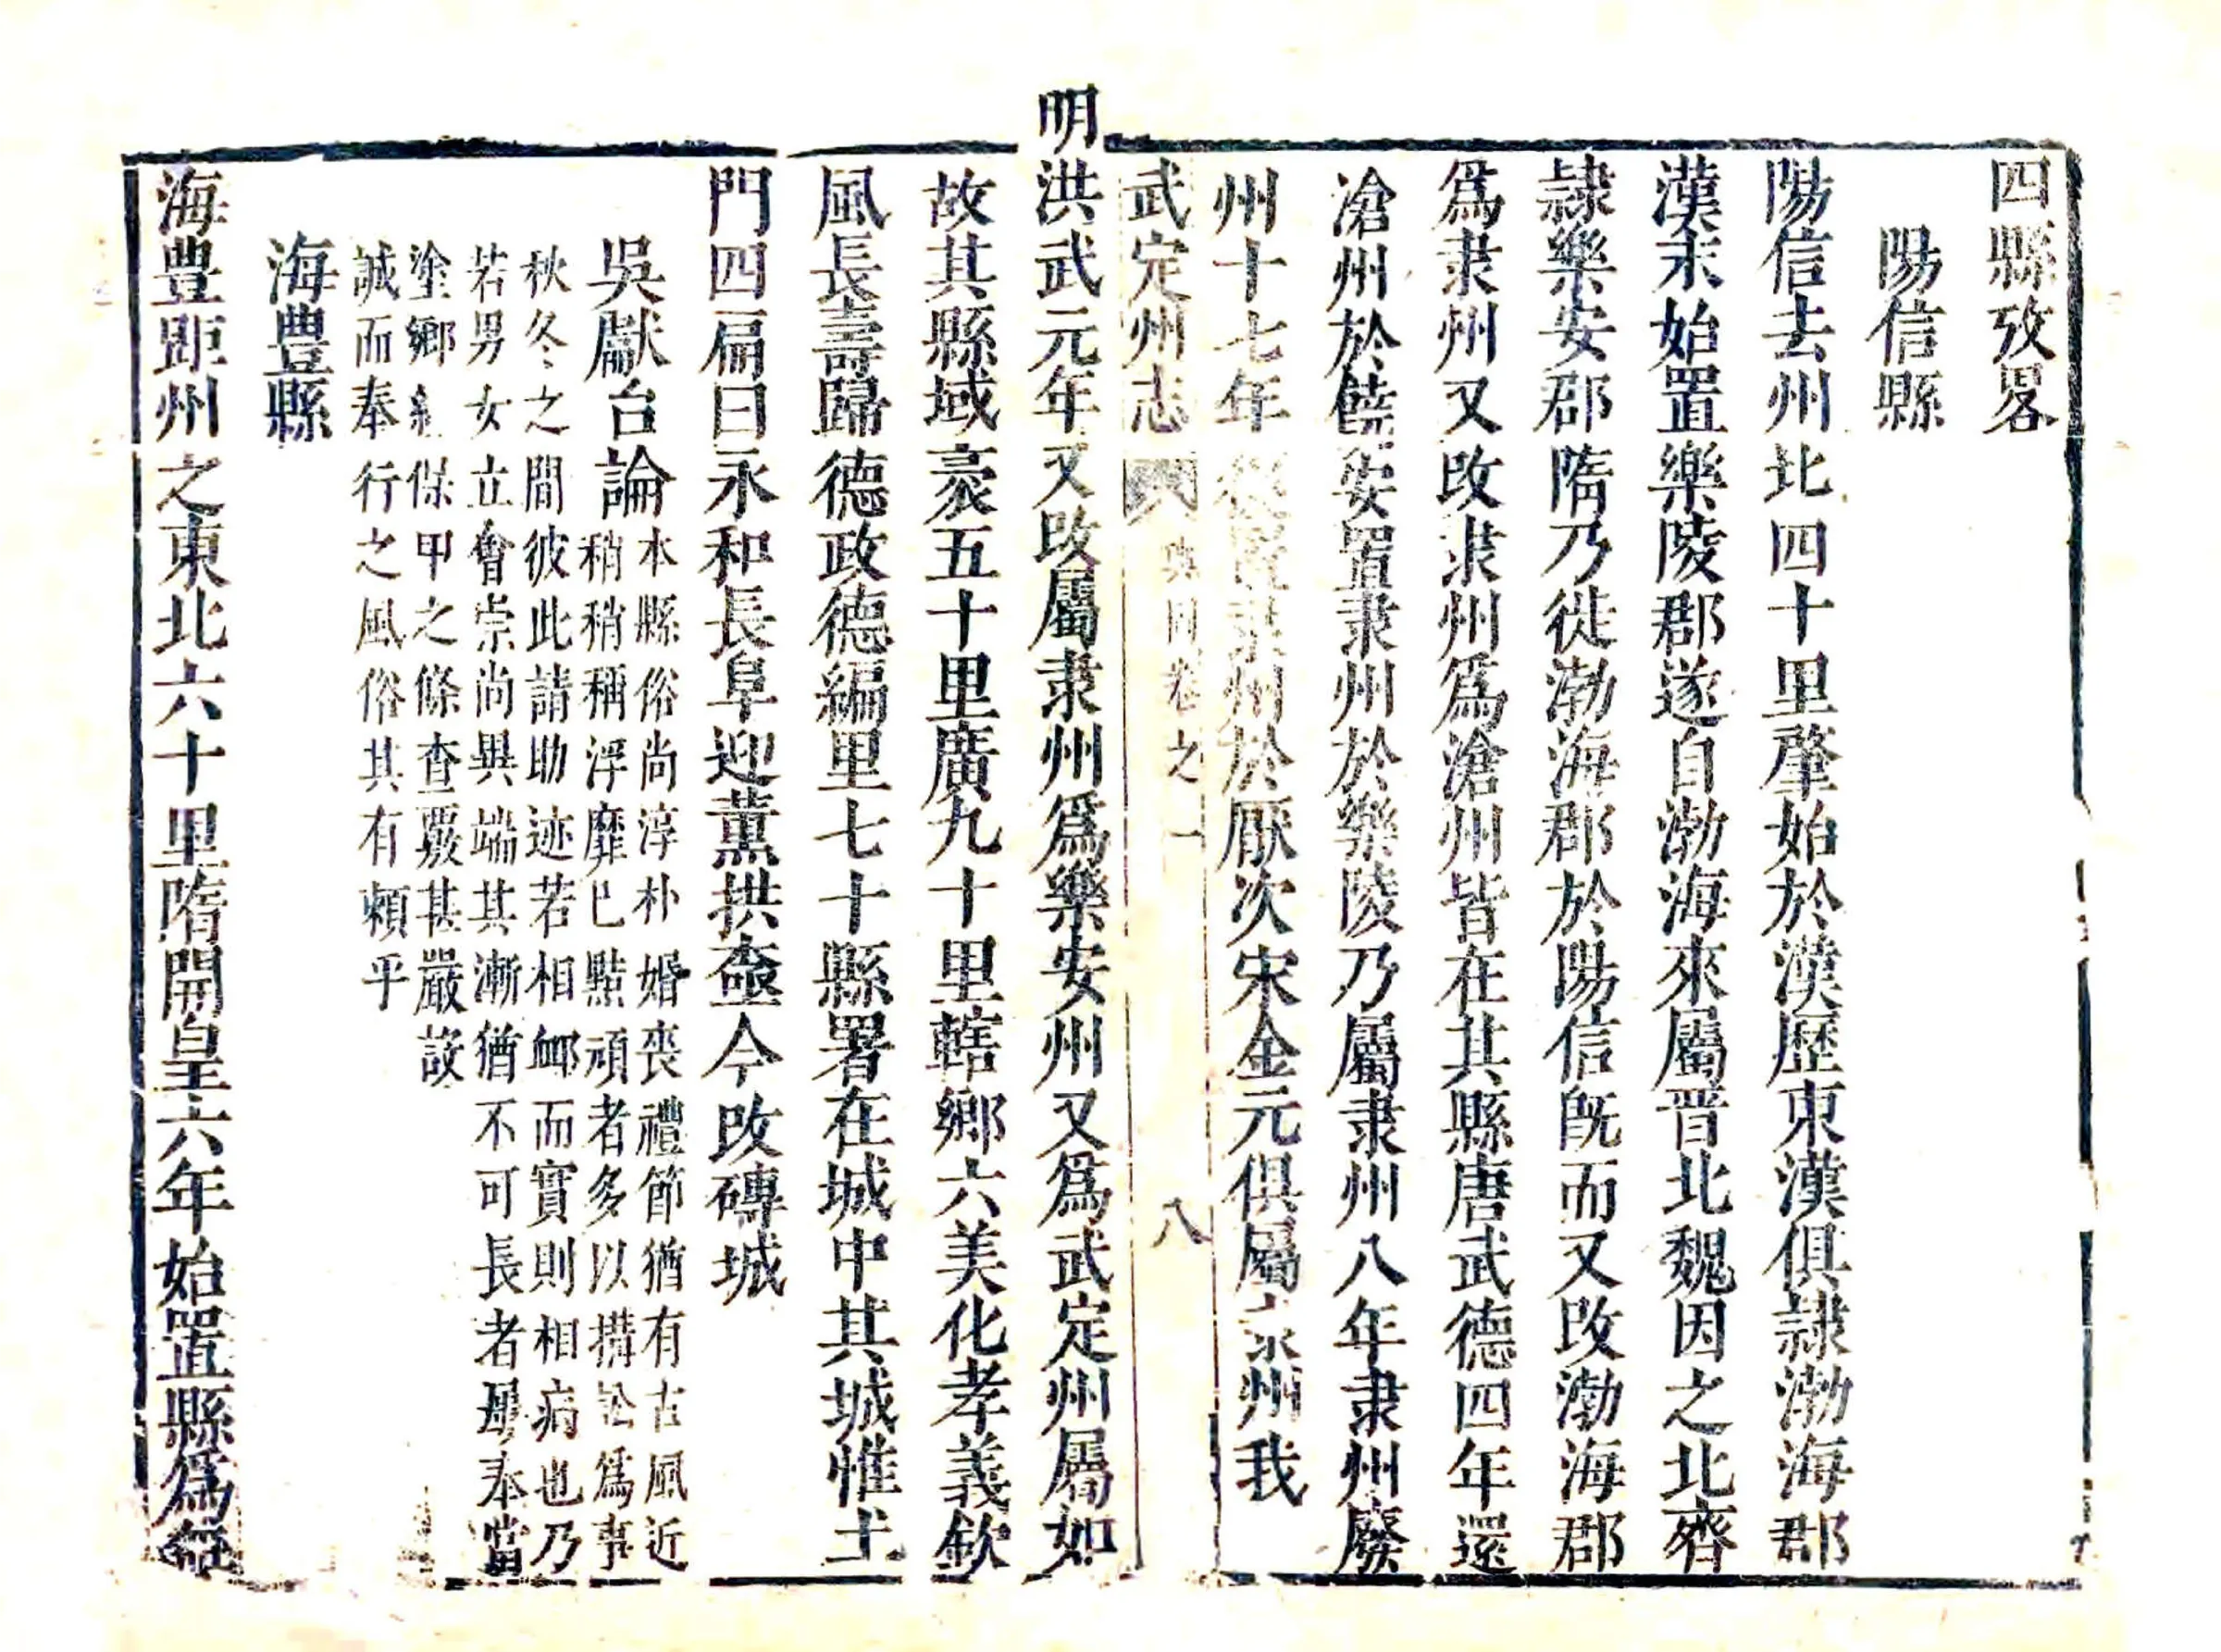 四縣攷畧
陽信縣
陽信去州北四十里肇始於漢歷東漢俱隷渤海郡
漢末始置樂陵郡遂自渤海來屬晋北魏因之北齊
隷樂安郡隋乃徙渤海郡於陽信旣而又改渤海郡
爲隶州又改隶州爲滄州皆在其縣唐武德四年還
滄州於饒安置隶州於樂陵乃屬隶州八年隶州廢
州十七年復置隶州於厭次宋金元俱屬隶州我
武定州志
輿圖卷之一
八
明洪武元年又改屬隶州爲樂安州又爲武定州屬如
故其縣域袤五十里廣九十里轄鄉六美化孝義欽
風長壽歸德政德編里七十縣署在城中其城惟土
門四扁曰永和長阜迎薰拱極今改磚城
吳獻台論
本縣俗尚淳朴婚喪禮節猶有古風近
稍稍稱浮靡巳㸃頑者多以搆訟爲事
秋冬之間彼此請助迹若相䘏而實則相病也乃
若男女立會崇尚異端其漸猶不可長者毋奉當
塗鄉約保甲之條查覈甚嚴設
誠而奉行之風俗其有頼乎
海豊縣
海豊距州之東北六十里隋開皇六年始置縣爲無